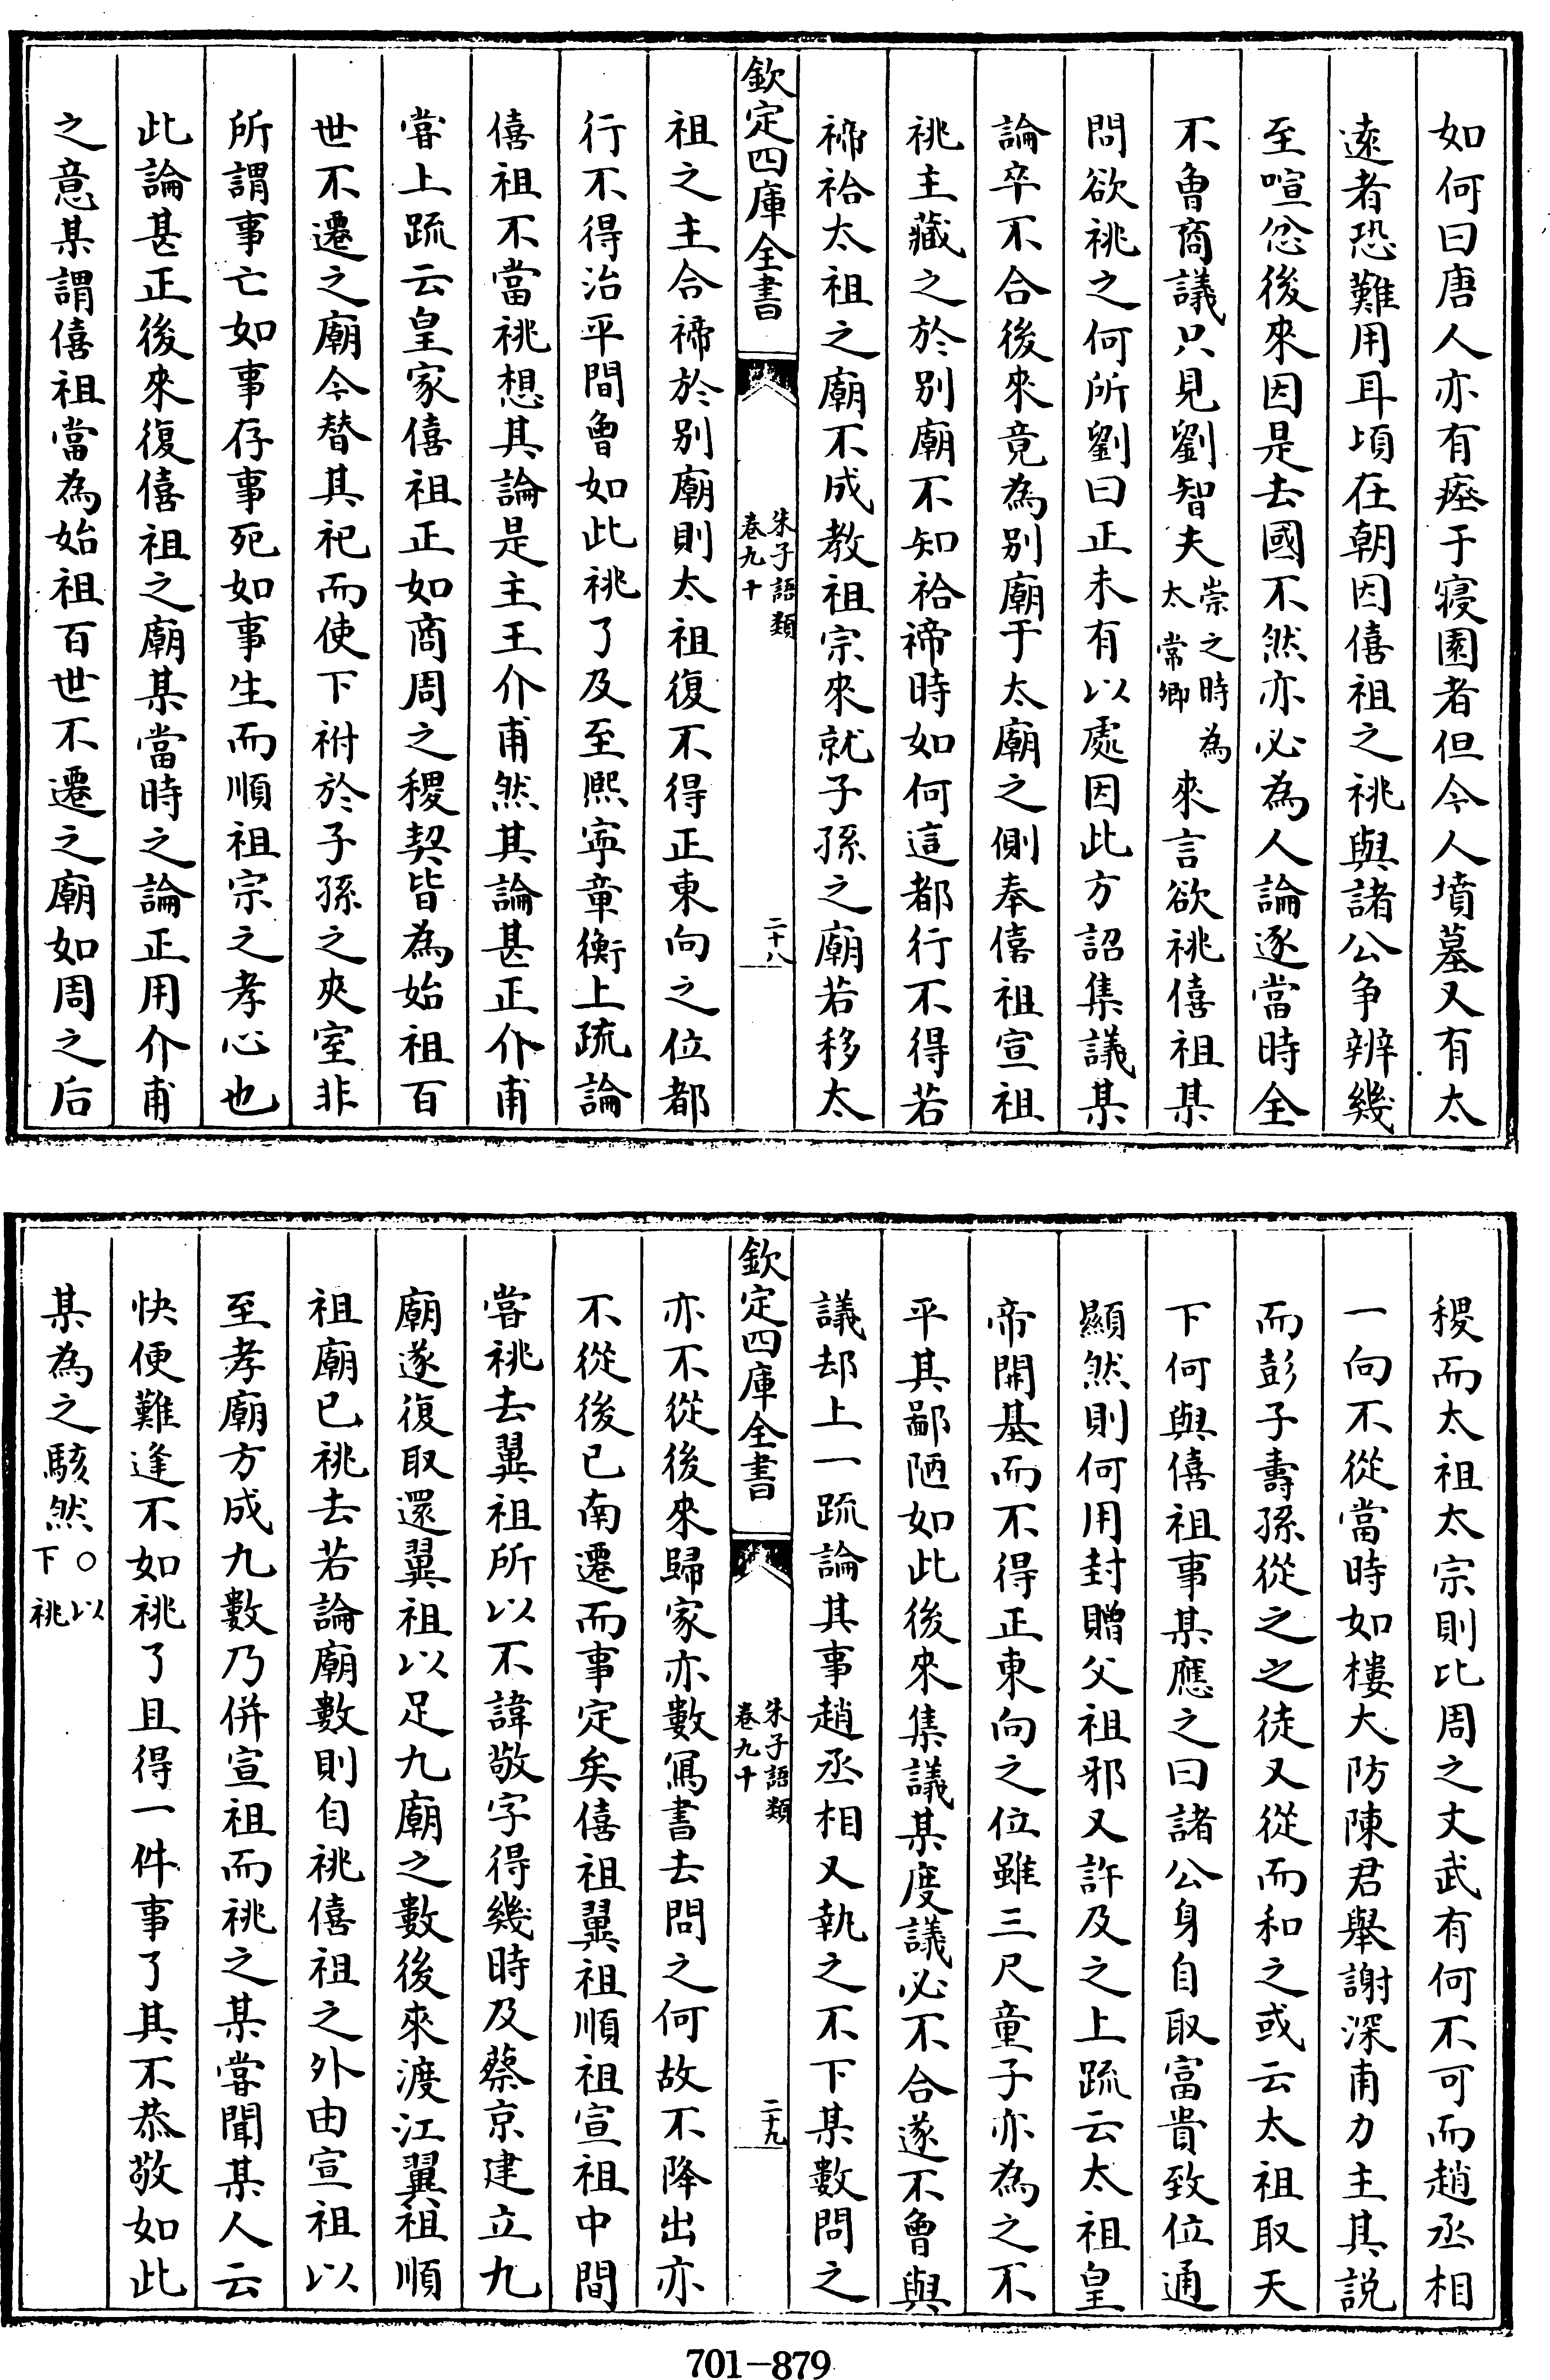 如何曰唐人亦有瘞于寢園者但今人墳墓又有太
遠者恐難用耳頃在朝因僖祖之祧與諸公争辨幾
至喧忿後來因是去國不然亦必為人論逐當時全
不曾商議只見劉智夫崇之時為太常卿來言欲祧僖祖某
問欲祧之何所劉曰正未有以處因此方詔集議某
論卒不合後來竟為别廟于太廟之側奉僖祖宣祖
祧主藏之於别廟不知祫禘時如何這都行不得若
禘祫太祖之廟不成教祖宗來就子孫之廟若移太
欽定四庫全書
朱子語類
卷九十
二十八
祖之主合禘於别廟則太祖復不得正東向之位都
行不得治平間曾如此祧了及至熙寧章衡上疏論
僖祖不當祧想其論是主王介甫然其論甚正介甫
嘗上疏云皇家僖祖正如商周之稷契皆為始祖百
世不遷之廟今替其祀而使下祔於子孫之夾室非
所謂事亡如事存事死如事生而順祖宗之孝心也
此論甚正後來復僖祖之廟某當時之論正用介甫
之意某謂僖祖當為始祖百世不遷之廟如周之后
稷而太祖太宗則比周之文武有何不可而趙丞相
一向不從當時如樓大防陳君舉謝深甫力主其説
而彭子壽孫從之之徒又從而和之或云太祖取天
下何與僖祖事某應之曰諸公身自取富貴致位通
顯然則何用封贈父祖邪又許及之上疏云太祖皇
帝開基而不得正東向之位雖三尺童子亦為之不
平其鄙陋如此後來集議某度議必不合遂不曾與
議却上一疏論其事趙丞相又執之不下某數問之
欽定四庫全書
朱子語類
卷九十
二十九
亦不從後來歸家亦數寫書去問之何故不降出亦
不從後已南遷而事定矣僖祖翼祖順祖宣祖中間
嘗祧去翼祖所以不諱敬字得幾時及蔡京建立九
廟遂復取還翼祖以足九廟之數後來渡江翼祖順
祖廟已祧去若論廟數則自祧僖祖之外由宣祖以
至孝廟方成九數乃併宣祖而祧之某嘗聞某人云
快便難逢不如祧了且得一件事了其不恭敬如此
某為之駭然○以下祧
701—879